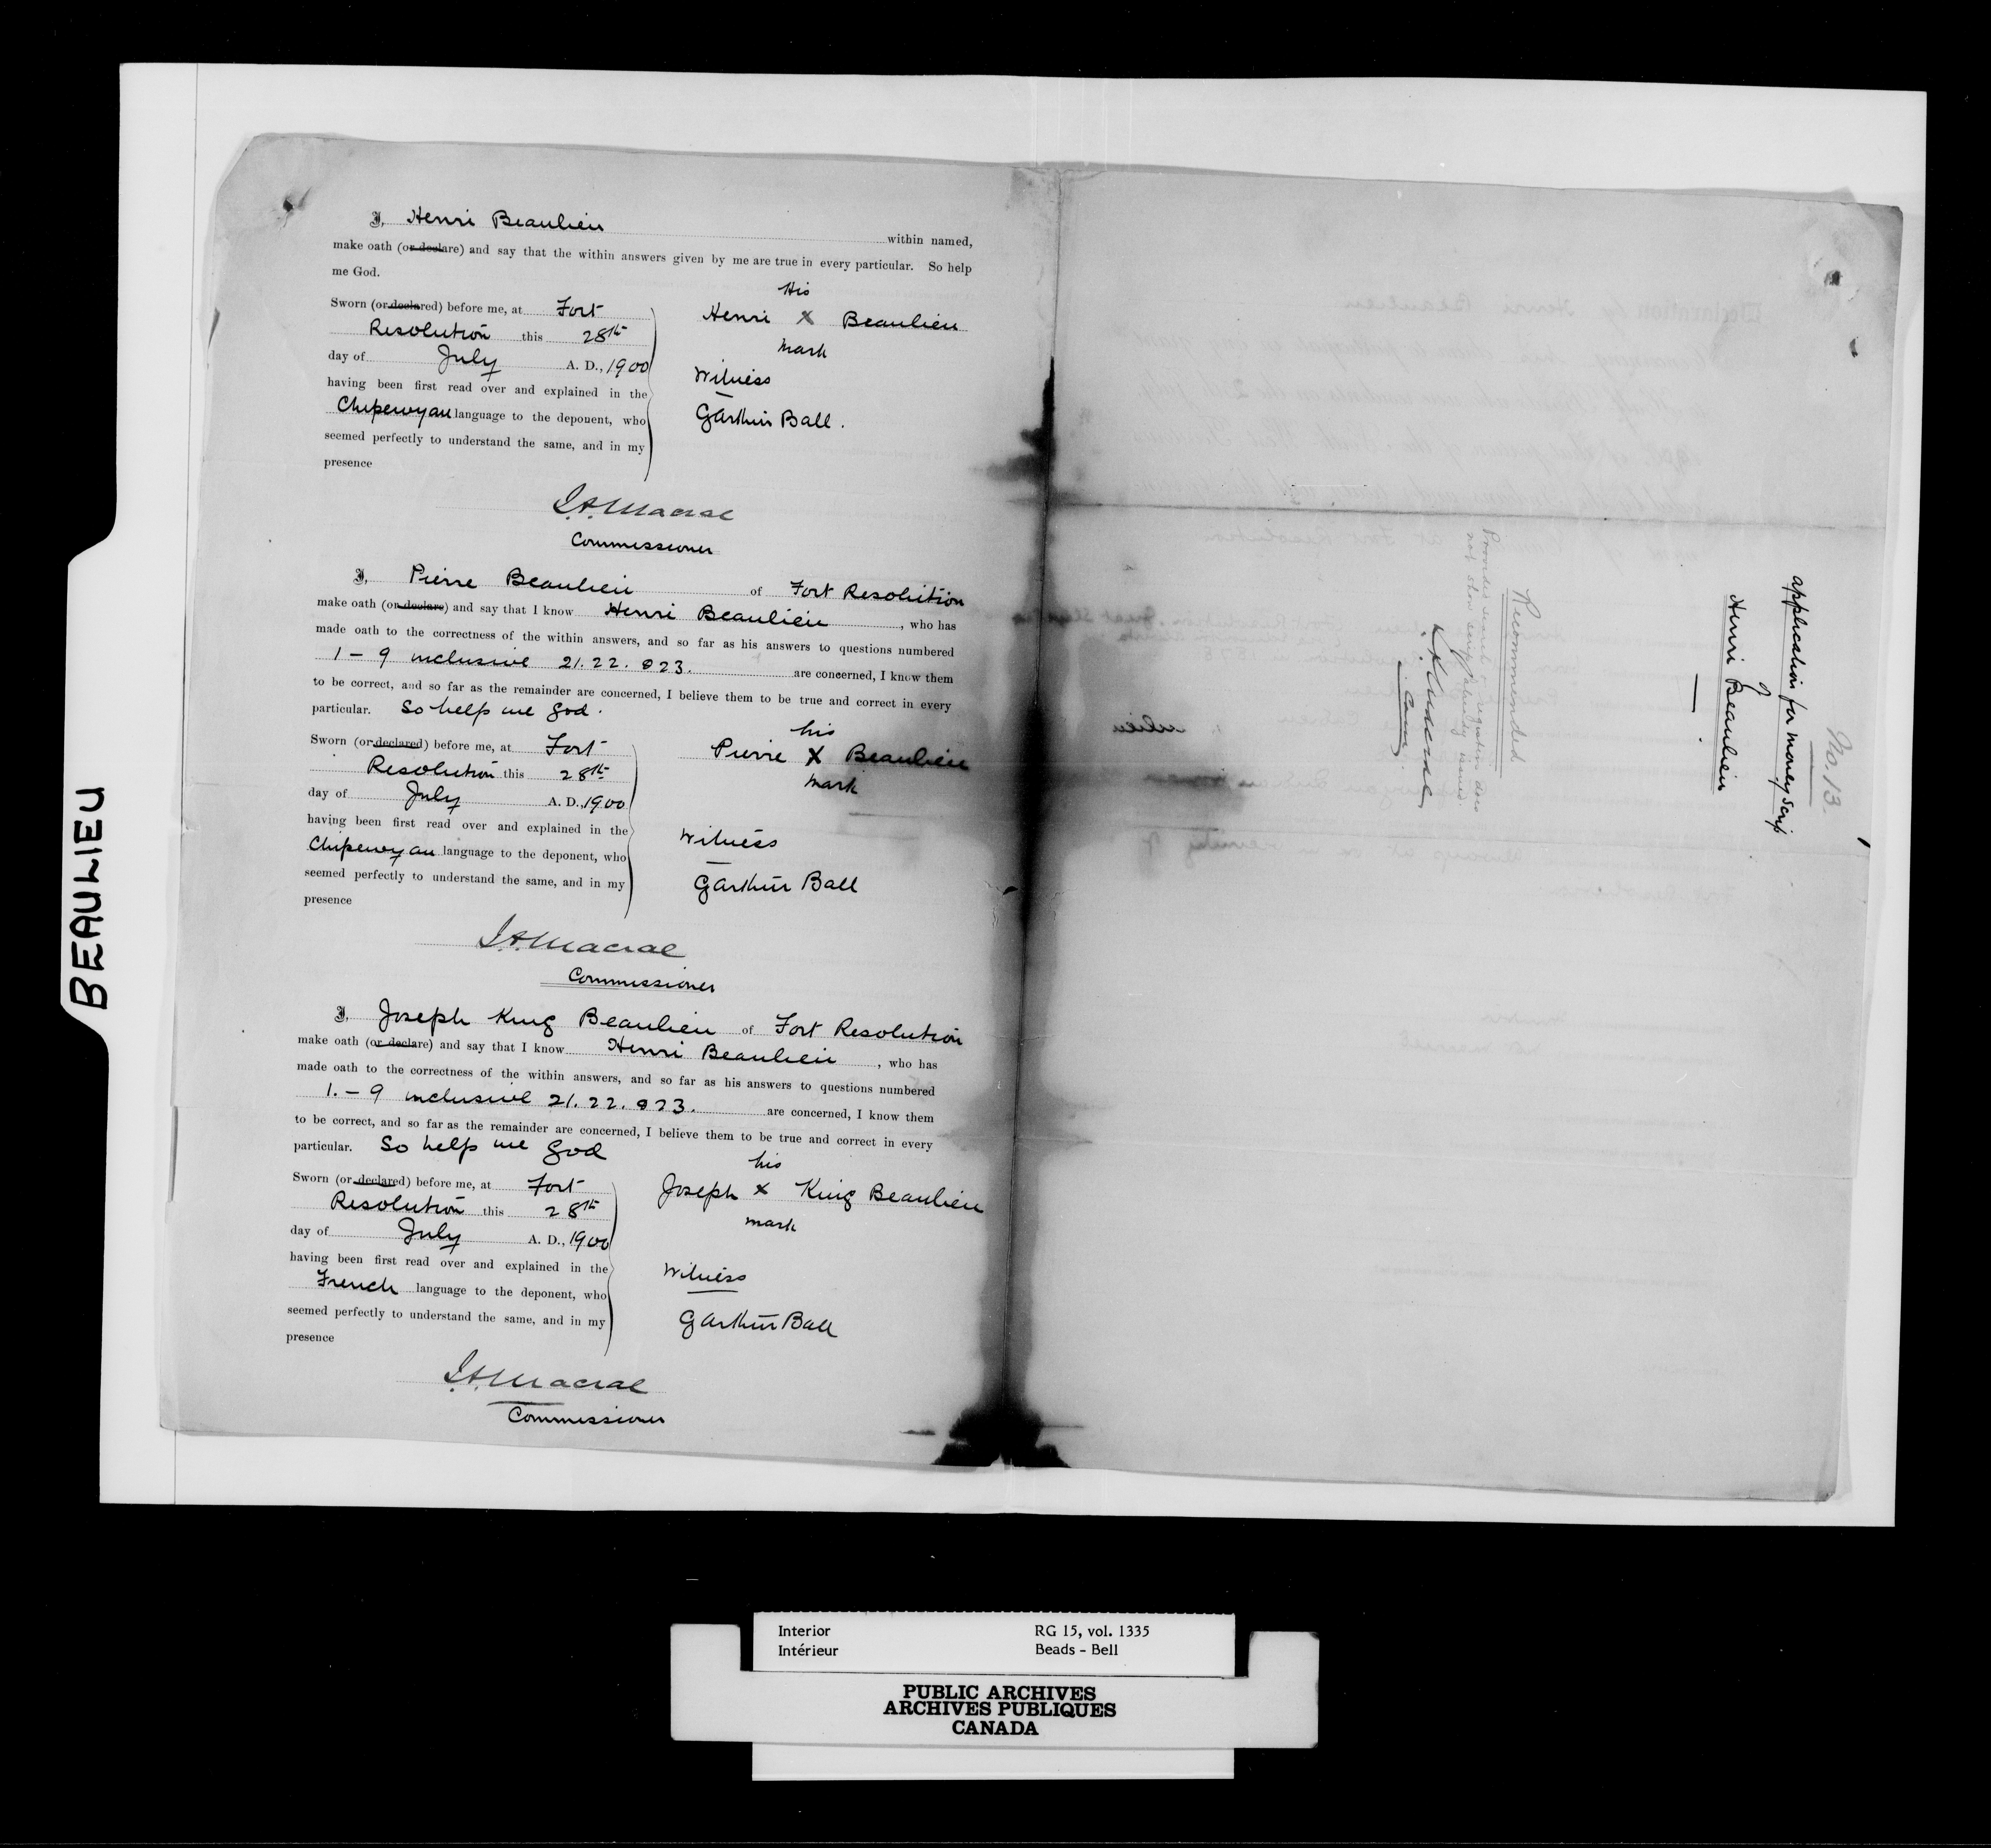 BEAULIEU
I, Henri Beaulieu within named,
make oath (or declare) and say that the within answers given by me are true in every particular. So help
me God.
Sworn (or declared) before me, at Fort
Resolution this 28th
day of July A. D., 1900
having been first read over and explained in the
Chipewyan language to the deponent, who
seemed perfectly to understand the same, and in my
presence
His
Henri X Beaulieu
mark
Witness
Garthur Ball.
J.A. Macrae
Commissioner
I, Pierre Beaulieu of Fort Resolution
make oath (or declare) and say that I know Henri Beaulieu, who has
made oath to the correctness of the within answers, and so far as his answers to questions numbered
1 – 9 inclusive 21. 22. & 23. are concerned, I know them
to be correct, and so far as the remainder are concerned, I believe them to be true and correct in every
particular. So help me God.
Sworn (or declared) before me, at Fort
Resolution this 28th
day of July A. D., 1900
having been first read over and explained in the
Chipewyan language to the deponent, who
seemed perfectly to understand the same, and in my
presence
his
Pierre X Beaulieu
mark
Witness
Garthur Ball
J.A. Macrae
Commissioner
I, Joseph King Beaulieu of Fort Resolution
make oath (or declare) and say that I know Henri Beaulieu, who has
made oath to the correctness of the within answers, and so far as his answers to questions numbered
1. – 9 inclusive 21. 22. & 23. are concerned, I know them
to be correct, and so far as the remainder are concerned, I believe them to be true and correct in every
particular. So help me God
Sworn (or declared) before me, at Fort
Resolution this 28th
day of July A. D., 1900
having been first read over and explained in the
French language to the deponent, who
seemed perfectly to understand the same, and in my
presence
his
Joseph X King Beaulieu
mark
Witness
Garthur Ball
J.A. Macrae
Commissioner
No. 13.
application for money Scrip
of
Henri Beaulieu
Recommended
Provided search & registration does
not show scrip already issued
J.A. Macrae
Comr.
Interior
Intérieur
RG 15, vol. 1335
Beads - Bell
PUBLIC ARCHIVES
ARCHIVES PUBLIQUES
CANADA